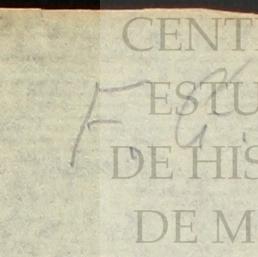 CENT
ESTU
DE HIS
DE M
F.